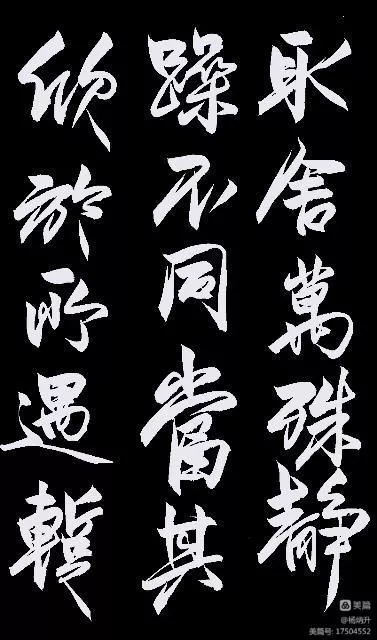 取舍萬殊静
躁不同當其
欣於所遇暫
美篇
@杨炳升
美篇号: 17504552